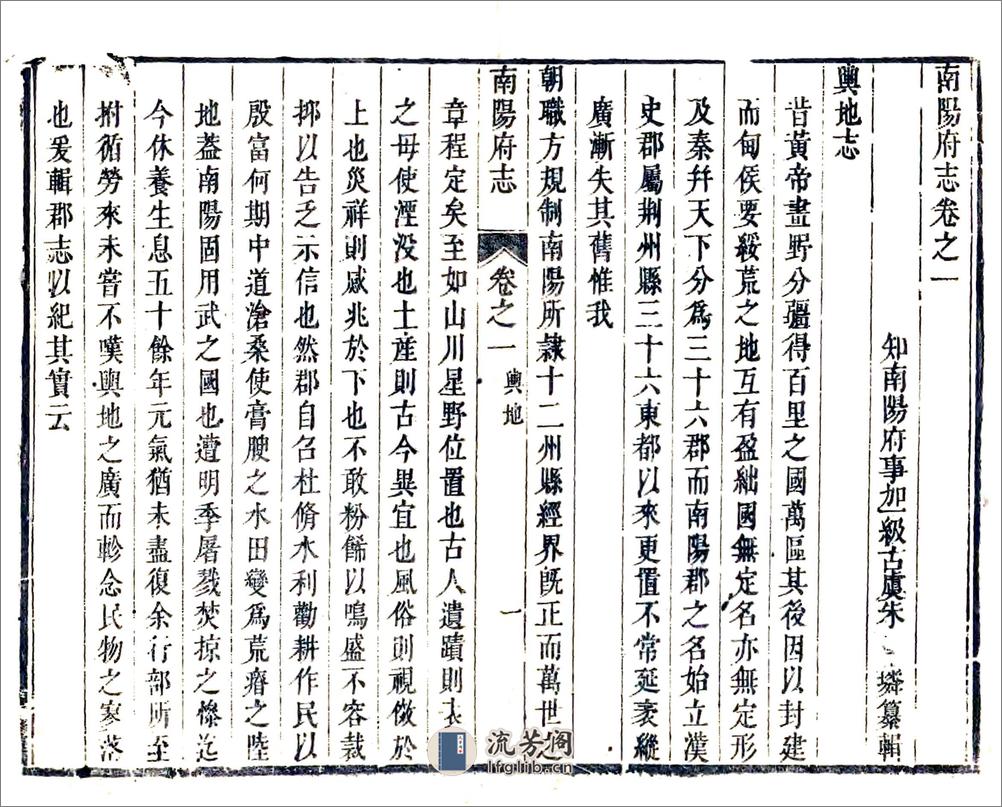 南陽府志卷之一
知南陽府事加一級古虞朱璘纂輯
輿地志
昔黃帝畫野分疆得百里之國萬區其後因以封建
而甸侯要綏荒之地互有盈絀國無定名亦無定形
及秦幷天下分爲三十六郡而南陽郡之名始立漢
史郡屬荆州縣三十六東都以來更置不常延袤縱
廣漸失其舊惟我
朝職方規制南陽所隸十二州縣經界旣正而萬世之
南陽府志 卷之一 輿地 一
章程定矣至如山川星野位置也古人遺蹟則表
之毋使湮没也土産則古今異宜也風俗則視傚於
上也災祥則感兆於下也不敢粉餙以鳴盛不容裁
抑以告乏示信也然郡自召杜脩水利勸耕作民以
殷富何期中道滄桑使膏腴之水田變爲荒瘠之陸
地葢南陽固用武之國也遭明季屠戮焚掠之慘迄
今休養生息五十餘年元氣猶未盡復余行部所至
拊循勞來未嘗不嘆輿地之廣而軫念民物之寥落
也爰輯郡志以紀其實云
流芳阁
lfglib.cn